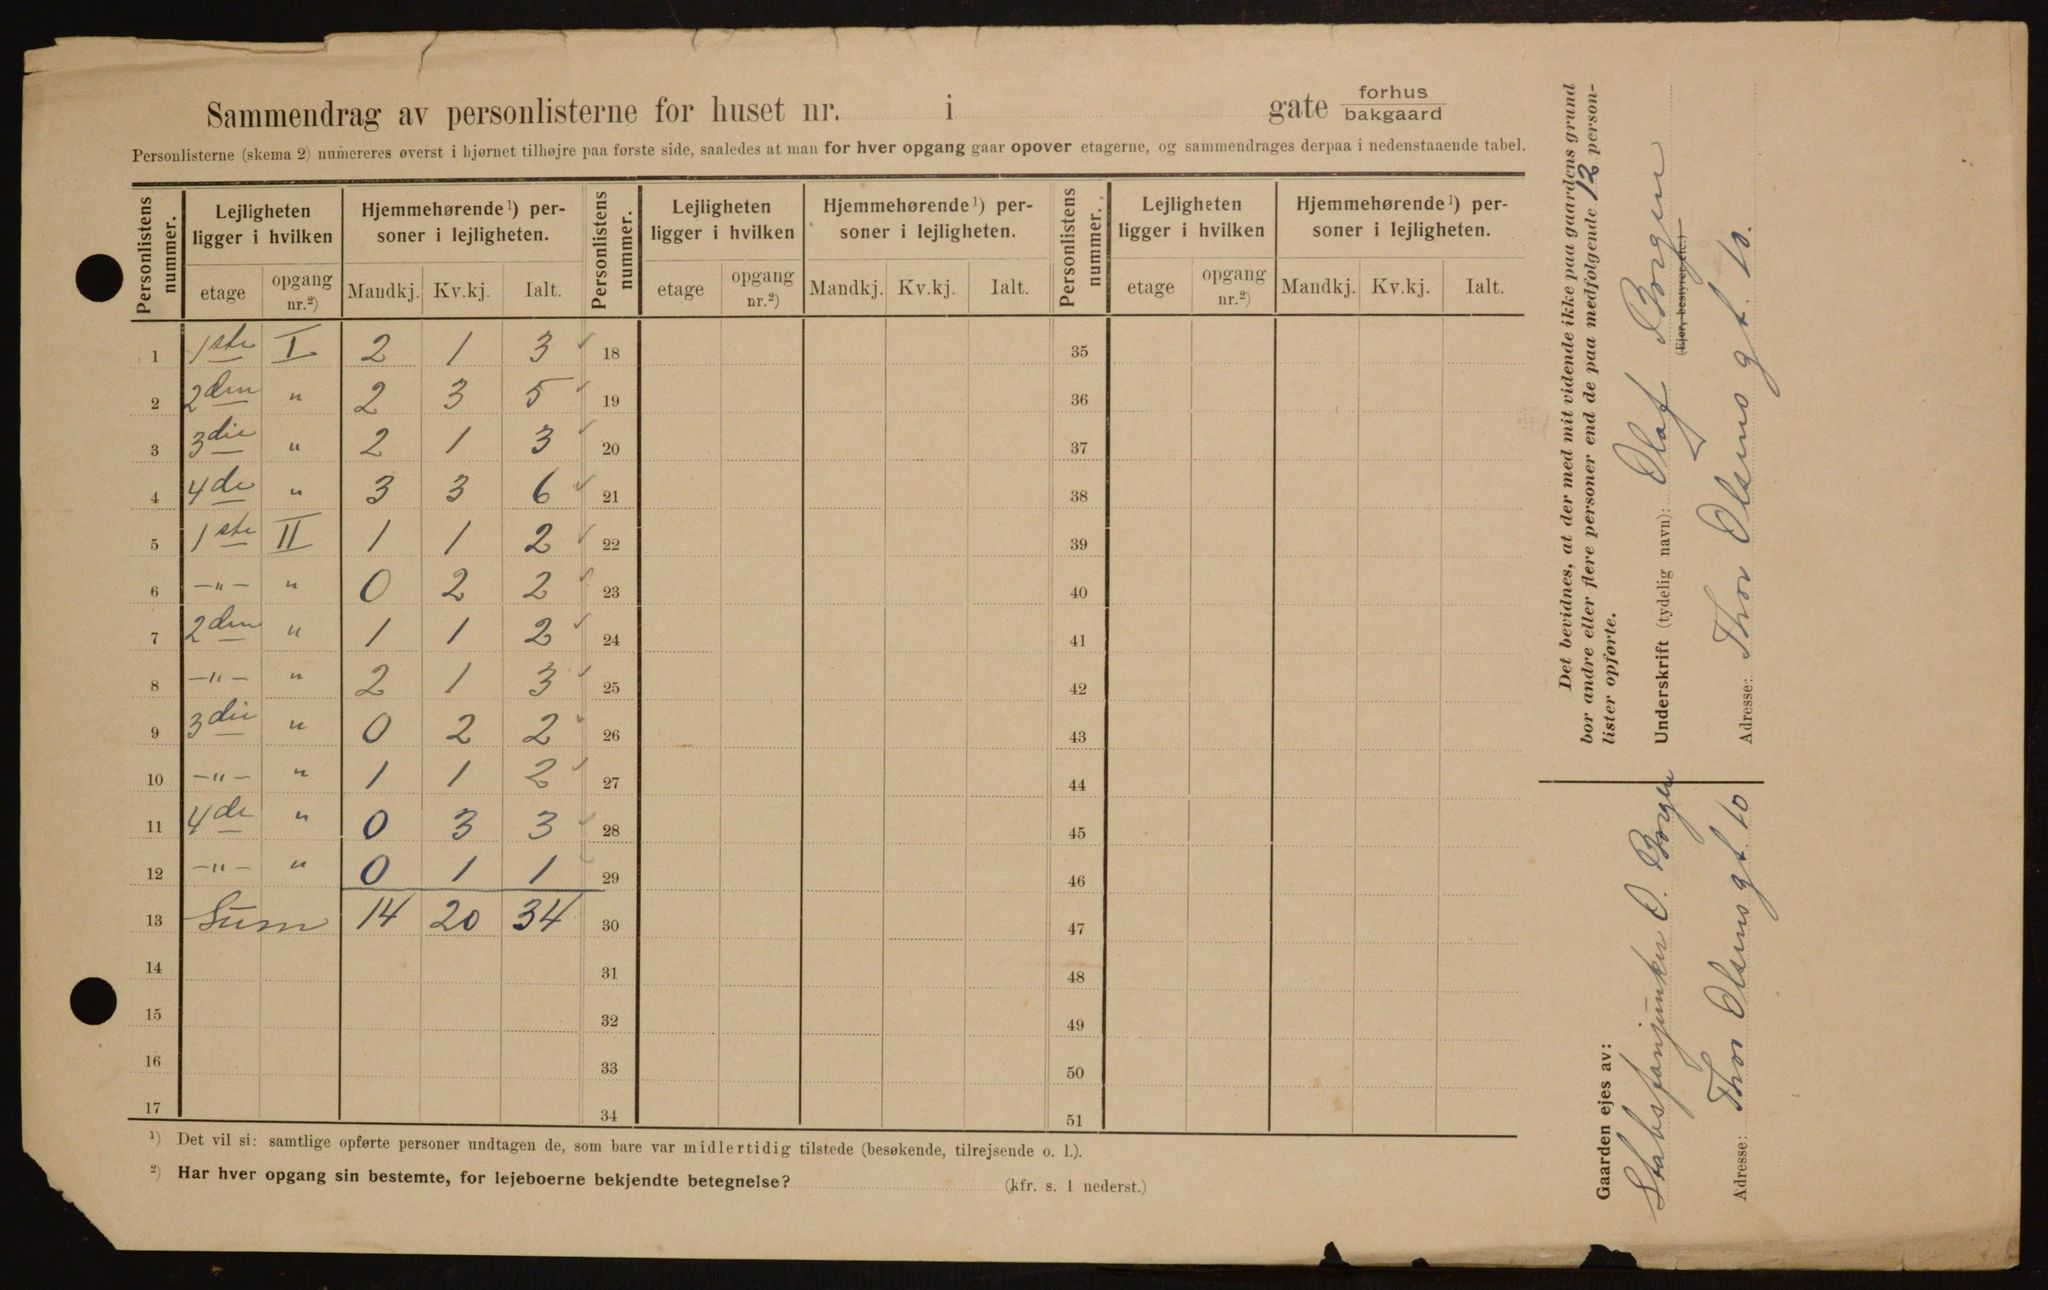 Sammendrag av personlisterne for huset nr. i gate forhus bakgaard
Personlisterne (skema 2) numereres øverst i hjørnet tilhøjre paa første side, saaledes at man for hver opgang gaar opover etagerne, og sammendrages derpaa i nedenstaaende tabel.
Personlistens nummer. Lejligheten ligger i hvilken Hjemmehørende ¹) personer i lejligheten. Personlistens nummer. Lejligheten ligger i hvilken Hjemmehørende ¹) personer i lejligheten. Personlistens nummer. Lejligheten ligger i hvilken Hjemmehørende ¹) personer i lejligheten.
etage opgang nr.²) Mandkj. Kv.kj. Ialt. etage opgang nr.²) Mandkj. Kv.kj. Ialt. etage opgang nr.²) Mandkj. Kv.kj. Ialt.
1 1ste I 2 1 3 18 35
2 2den " 2 3 5 19 36
3 3die " 2 1 3 20 37
4 4de " 3 3 6 21 38
5 1ste II 1 1 2 22 39
6 —"— " 0 2 2 23 40
7 2den " 1 1 2 24 41
8 —"— " 2 1 3 25 42
9 3die " 0 2 2 26 43
10 —"— " 1 1 2 27 44
11 4de " 0 3 3 28 45
12 —"— " 0 1 1 29 46
13 Sum 14 20 34 30 47
14 31 48
15 32 49
16 33 50
17 34 51
¹) Det vil si: samtlige opførte personer undtagen de, som bare var midlertidig tilstede (besøkende, tilrejsende o. l.).
²) Har hver opgang sin bestemte, for lejeboerne bekjendte betegnelse? (kfr. s. 1 nederst.)
Det bevidnes, at der med mit vidende ikke paa gaardens grund
bor andre eller flere personer end de paa medfølgende 12 person-
lister opførte.
Underskrift (tydelig navn): Olaf Borgen
(Ejer, bestyrer etc.)
Adresse: Thor Olsens gt. 10.
Gaarden ejes av:
Stabsfanejunker O. Borgen
Adresse: Thor Olsens gt 10